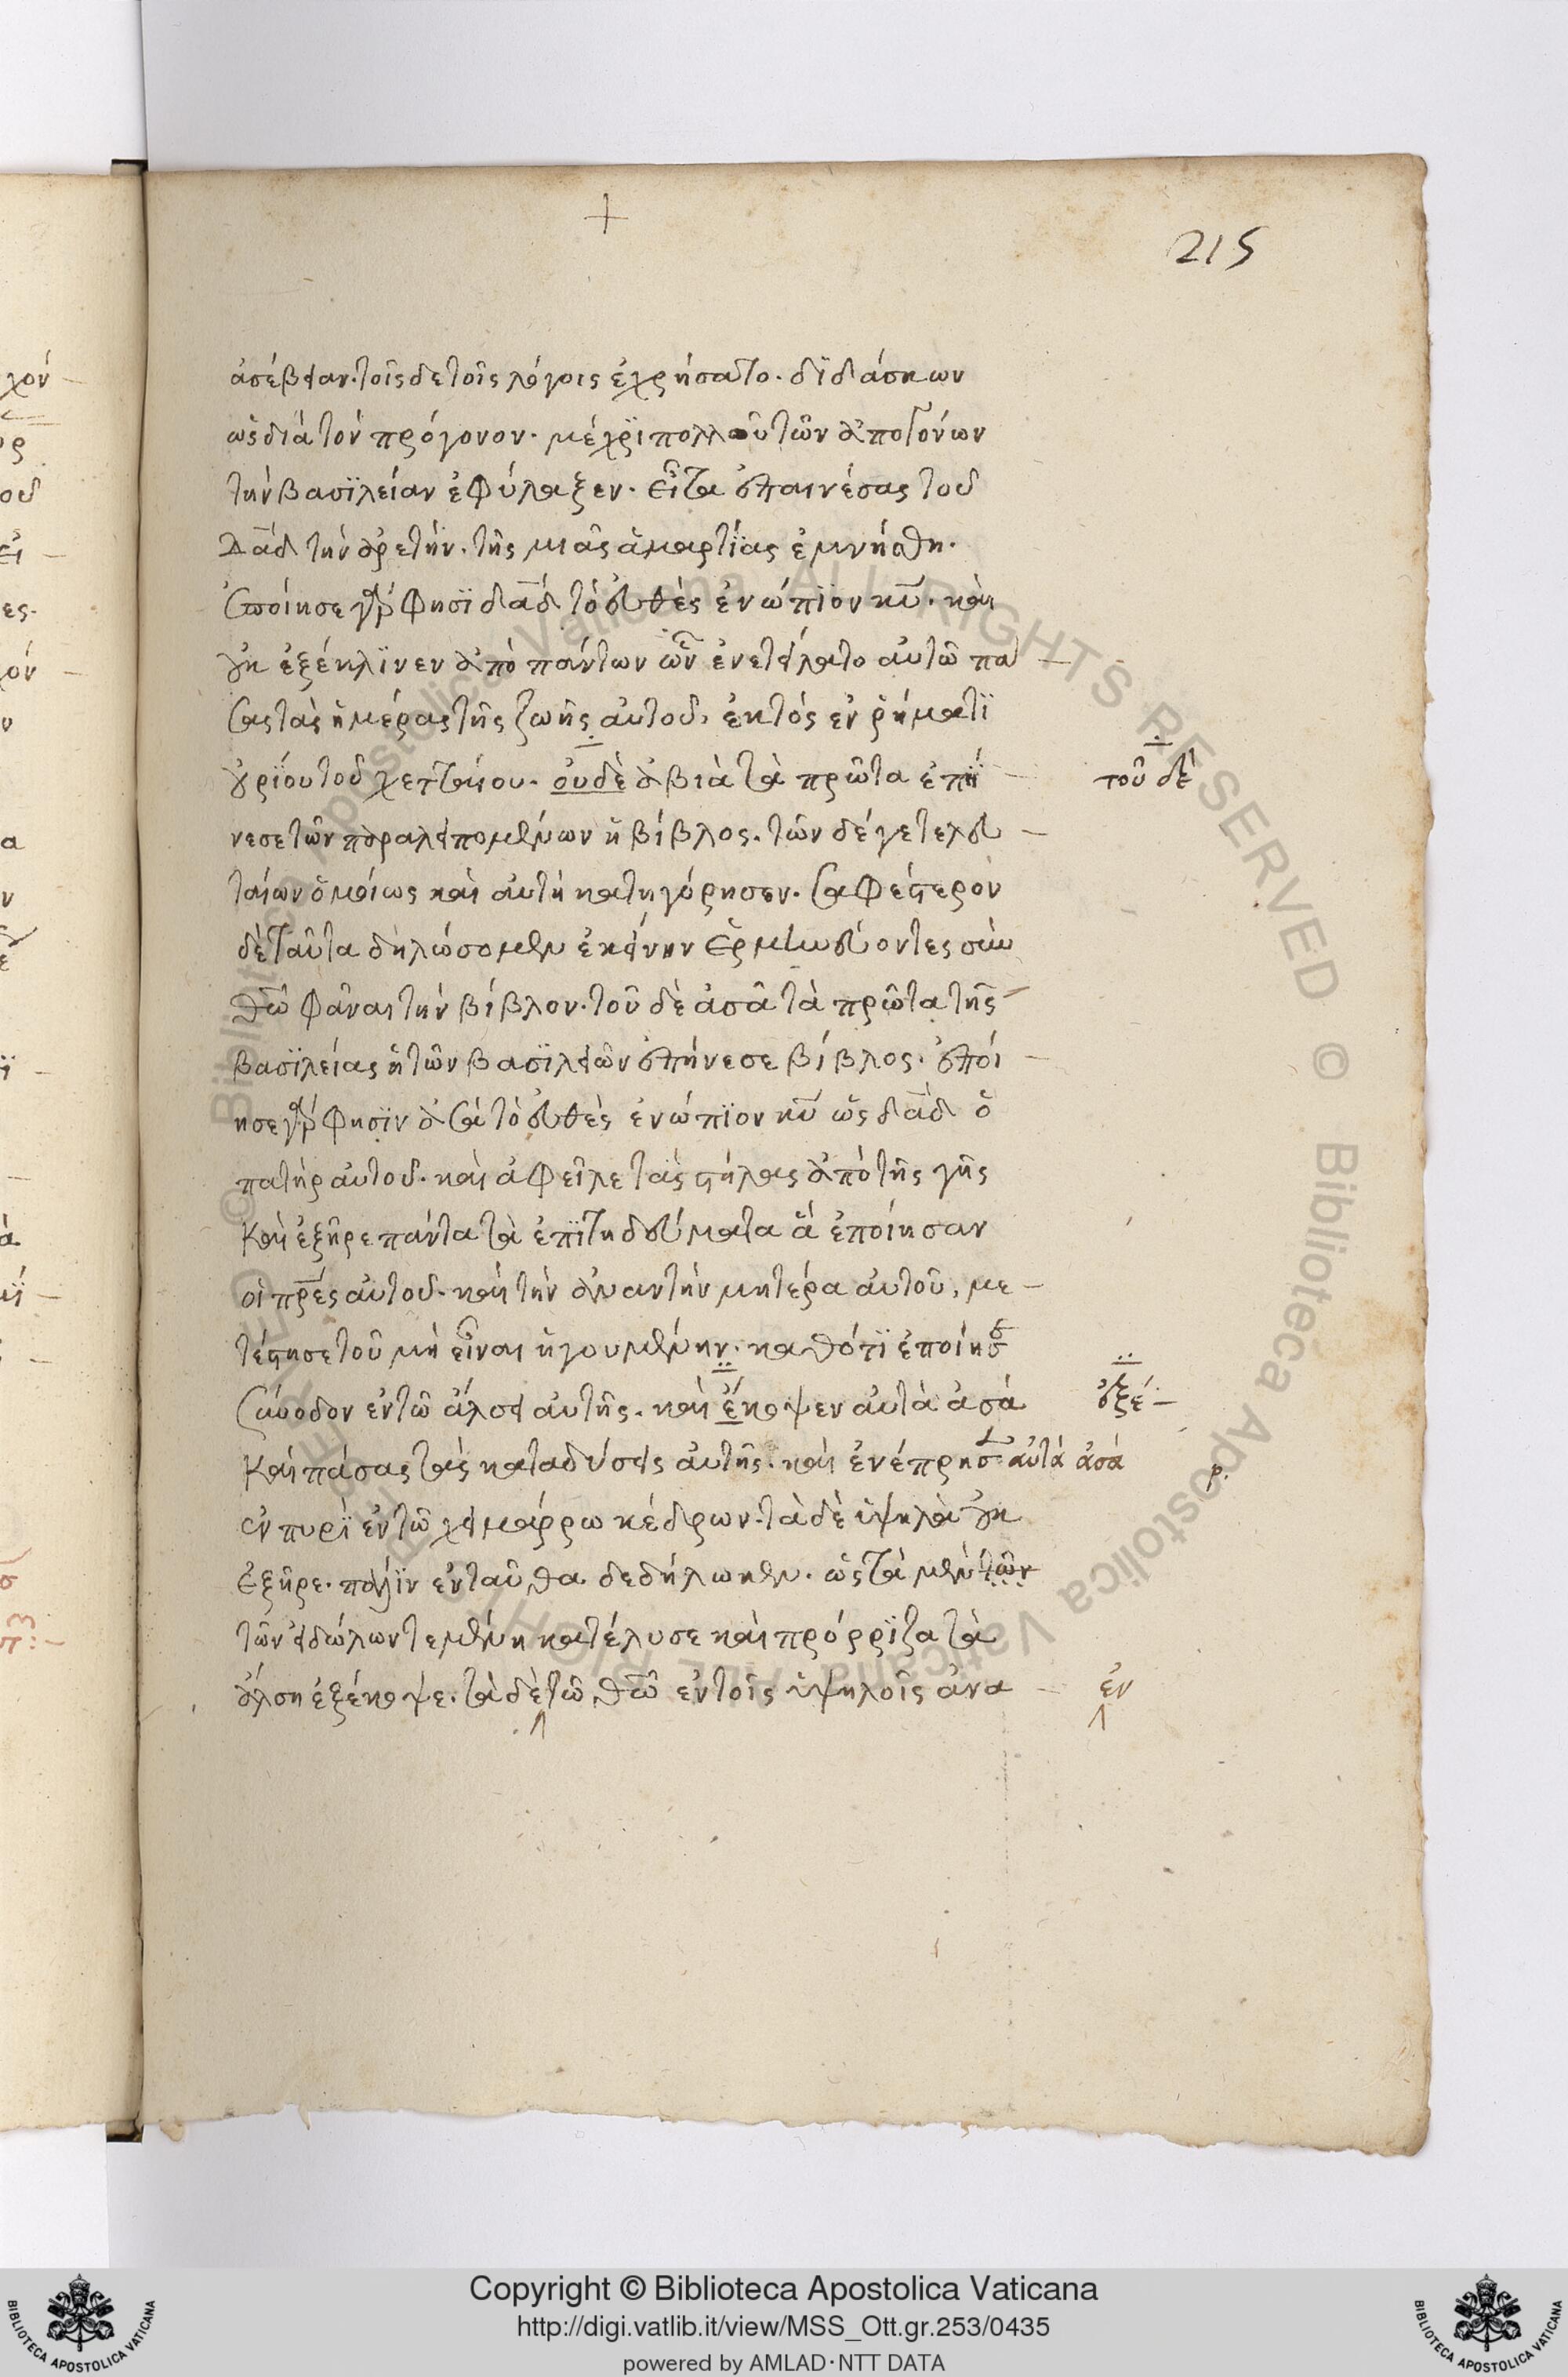 +
215
ἀσέβειαν. τοῖς δε τοῖς λόγοις ἐχρήσατο. διδάσκων
ὡς διὰ τὸν πρόγονον. μέχρι πολλοῦ τῶν ἀπογόνων
τὴν βασϊλείαν ἐφύλαξεν. εἶτα ἐπαινέσας τοῦ
δᾱδ τὴν ἀρετήν. τῆς μιᾶς ἁμαρτίας ἐμνήσθη.
ἐποίησε γὰρ φησὶ δᾱδ τὸ εὐθὲς ἐνώπϊον κῡ. καὶ
οὐκ ἐξέκλϊνεν ἀπὸ πάντων ὧν ἐνετείλατο αὐτῶ πά
σας τὰς ἡμέρας τῆς ζωῆς αὐτοῦ, ἐκτὸς ἐν ῥήματϊ
οὐρίου τοῦ χετταίου. οὐδὲ ἀβιὰ τὰ πρῶτα ἐπή
τοῦ δὲ
νεσε τῶν παραλειπομένων ἡ βίβλος. τῶν δέ γε τελευ
ταίων ὁμοίως καὶ αὐτὴ κατηγόρησεν. σαφέστερον
δὲ ταῦτα δηλώσομεν ἐκείνην ἑρμηνεύοντες σὺν
θῶ φᾶναι τὴν βίβλον. τοῦ δὲ ἀσᾶ τὰ πρῶτα τῆς
βασϊλείας ἡ τῶν βασϊλειῶν ἐπήνεσε βίβλος. ἐποί
ησε γὰρ φησὶν ἀσὰ τὸ εὐθὲς ἐνώπϊον κῡ ὡς δᾱδ ὁ
πατὴρ αὐτοῦ. καὶ ἀφεῖλε τὰς στήλας ἀπὸ τῆς γῆς
καὶ ἐξῆρε πάντα τὰ ἐπϊτηδεύματα ἃ ἐποίησαν
οἱ πρ̄ες αὐτοῦ. καὶ τὴν ἀναντὴν μητέρα αὐτοῦ, με
τέστησε τοῦ μὴ εἶναι ἡγουμένην. καθότϊ ἐποίησε
σύνοδον ἐν τῶ ἄλσει αὐτῆς. καὶ ἔκοψεν αὐτὰ ἀσὰ
ἐξέ
καὶ πάσας τὰς καταδύσεις αὐτῆς. καὶ ἐνέπρησεν αὐτὰ ἀσὰ
ἐν πυρὶ ἐν τῶ χειμάρρω κέδρων. τὰ δὲ ὑψηλὰ οὐκ
ἐξῆρε. πάλϊν ἐνταῦθα δεδήλωκεν. ὡς τὰ μὲν τῶν
τῶν εἰδώλων τεμένη κατέλυσε καὶ πρόρρϊζα τὰ
ἄλση ἐξέκοψε. τὰ δὲ τῶ θῶ ἐν τοῖς ὑψηλοῖς ἀνα
ἐν
Copyright © Biblioteca Apostolica Vaticana
http://digi.vatlib.it/view/MSS_Ott.gr.253/0435
powered by AMLAD·NTT DATA